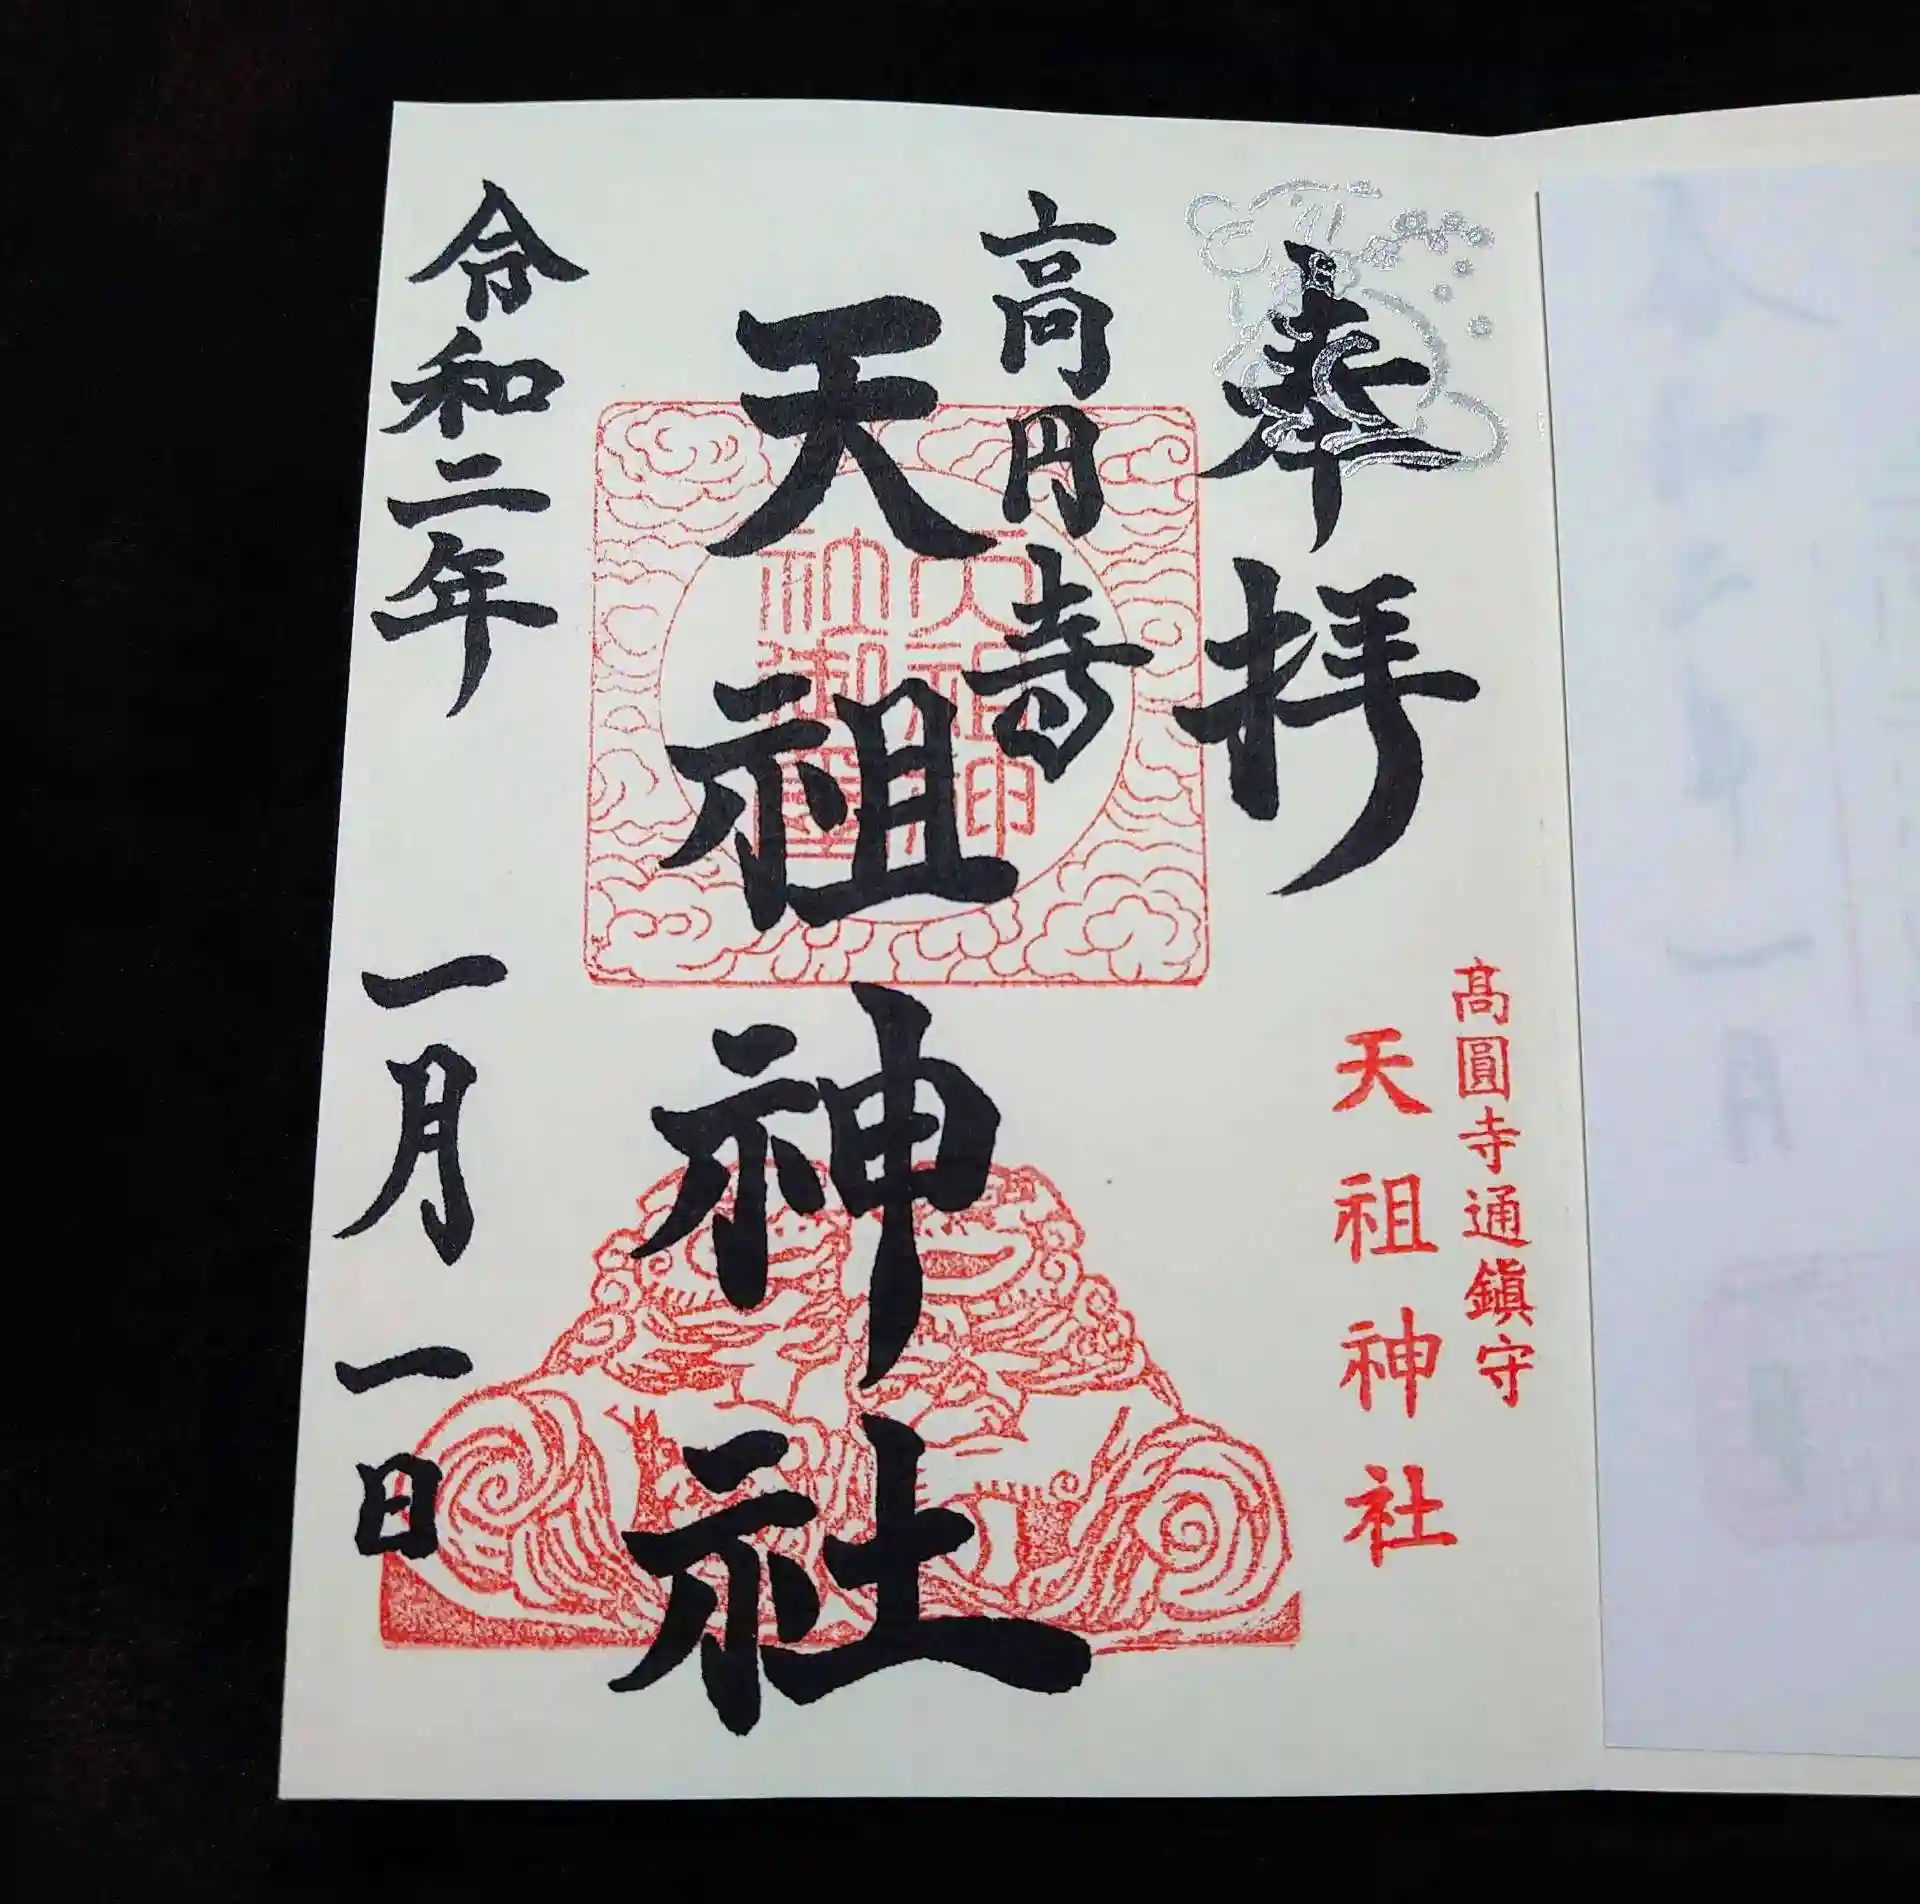 奉拝
高圓寺通鎮守
天祖神社
高円寺
天祖神社
天祖神
社御璽
令和二年 一月 一日